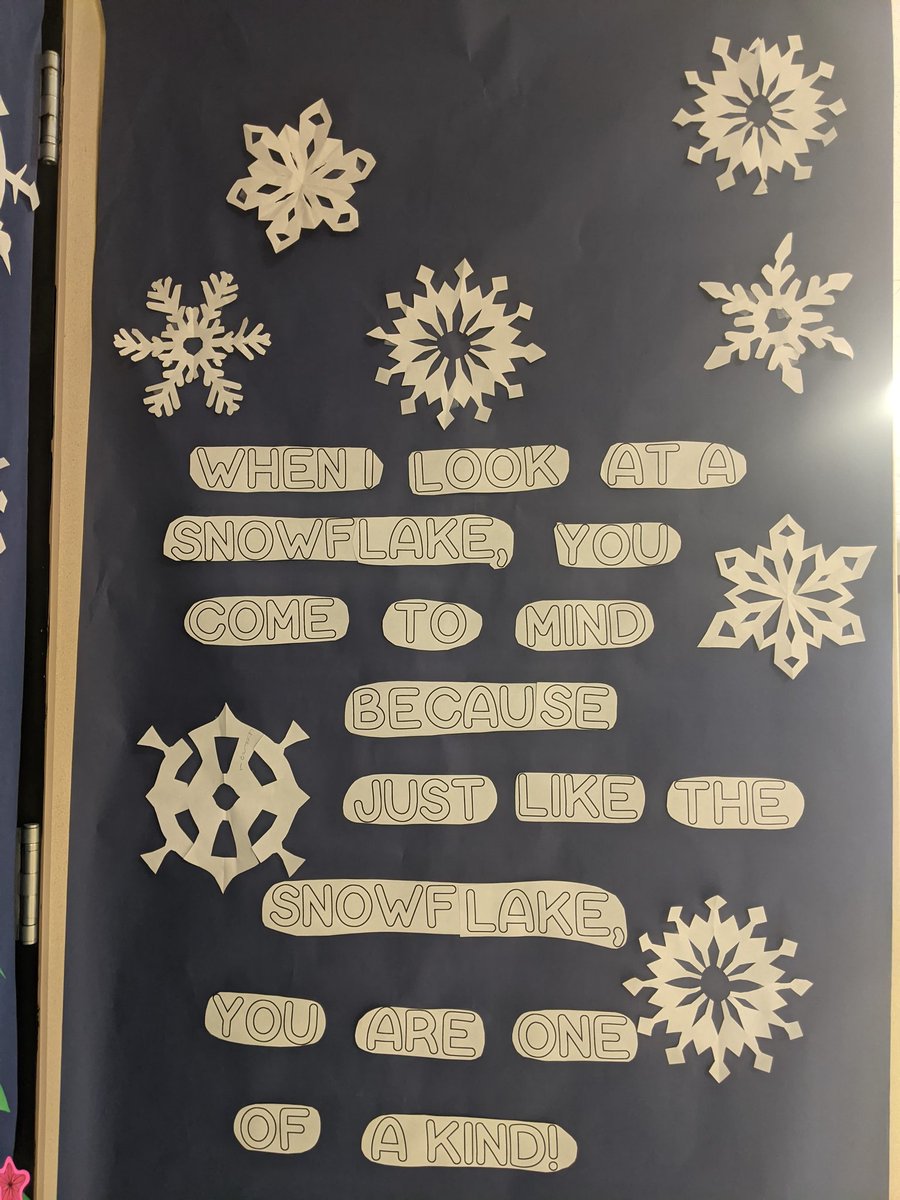 WHEN I LOOK AT A
SNOWFLAKE, YOU
COME TO MIND
BECAUSE
JUST LIKE THE
SNOWFLAKE,
YOU ARE ONE
OF A KIND!